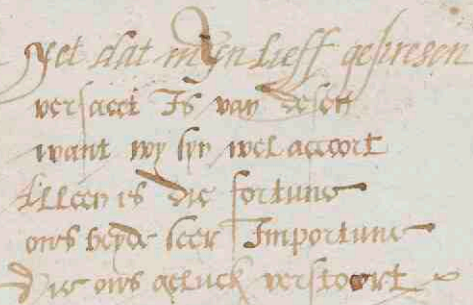 Nyet dat mijn lieff gepresen
versaect Is van desen
want wy syn wel accoort
Alleen is die fortune
ons beyde seer Importune
Die ons geluck verstoort